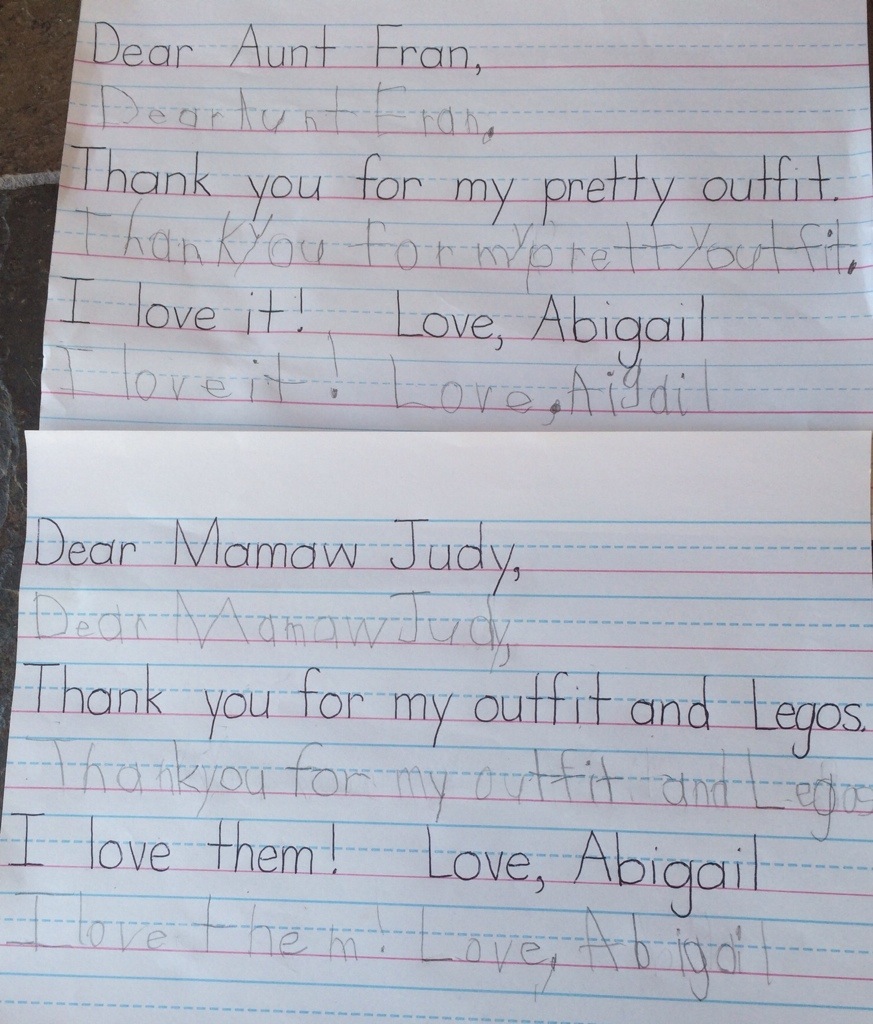 Dear Aunt Fran,
Dear Aunt Fran,
Thank you for my pretty outfit.
Thank you for my pretty outfit.
I love it! Love, Abigail
I love it! Love, Aigail
Dear Mamaw Judy,
Dear Mamaw Judy,
Thank you for my outfit and Legos.
Thank you for my outfit and Legos
I love them! Love, Abigail
I love them! Love, Abigail